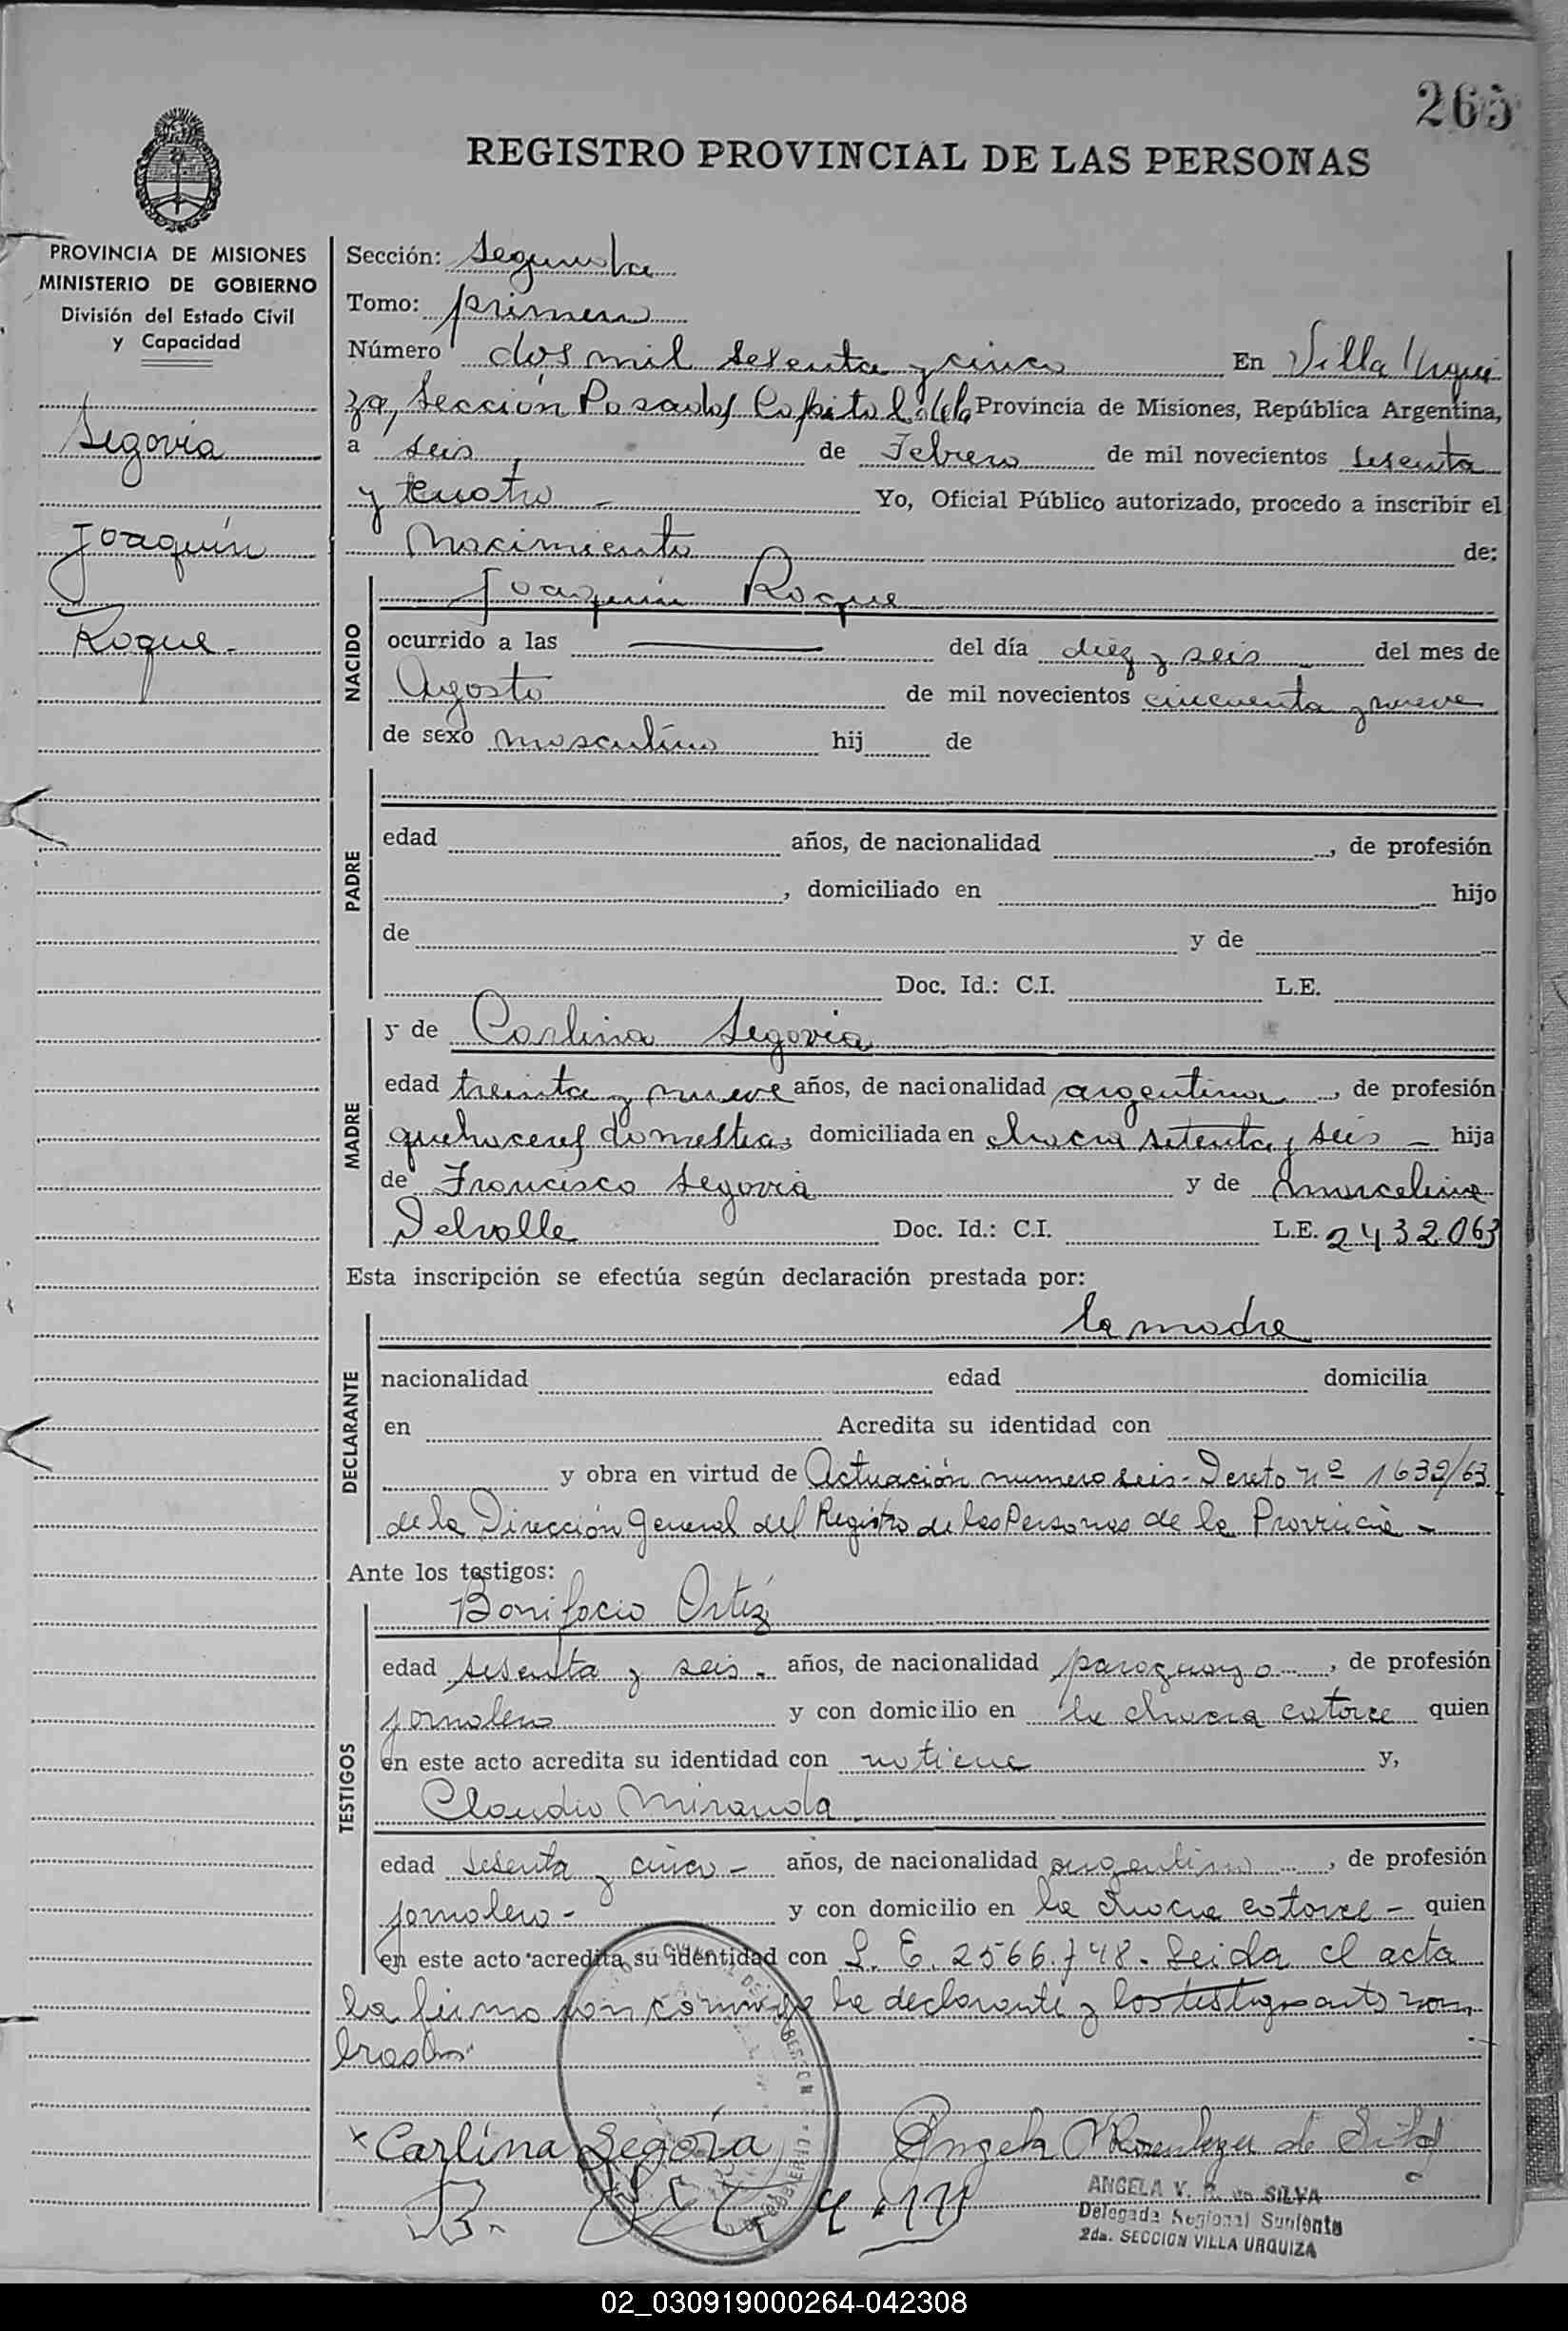 265
REGISTRO PROVINCIAL DE LAS PERSONAS
PROVINCIA DE MISIONES
MINISTERIO DE GOBIERNO
División del Estado Civil
y Capacidad
Segovia
Joaquín
Roque.
Sección: Segunda
Tomo: primero
Número dos mil sesenta y cinco En Villa Urqui
za, Sección Posadas Capital de la Provincia de Misiones, República Argentina,
a seis de Febrero de mil novecientos sesenta
y cuatro - Yo, Oficial Público autorizado, procedo a inscribir el
Nacimiento de:
NACIDO
Joaquín Roque
ocurrido a las —— del día diez y seis del mes de
Agosto de mil novecientos cincuenta y nueve
de sexo masculino hij de
PADRE
edad años, de nacionalidad , de profesión
, domiciliado en hijo
de y de
Doc. Id.: C.I. L.E.
MADRE
y de Carlina Segovia
edad treinta y nueve años, de nacionalidad argentina , de profesión
quehaceres domesticos domiciliada en chacra setenta y seis - hija
de Francisco Segovia y de Marcelina
Delvalle Doc. Id.: C.I. L.E. 2432063
Esta inscripción se efectúa según declaración prestada por:
DECLARANTE
la madre
nacionalidad edad domicilia
en Acredita su identidad con
y obra en virtud de Actuación numero seis - Decreto nº 1639/63
de la Dirección General del Registro de las Personas de la Provincia -
Ante los testigos:
TESTIGOS
Bonifacio Ortíz
edad sesenta y seis - años, de nacionalidad paraguayo , de profesión
jornalero y con domicilio en la chacra catorce quien
en este acto acredita su identidad con no tiene y,
Claudio Miranda
edad sesenta y cinco - años, de nacionalidad argentino , de profesión
jornalero - y con domicilio en la chacra catorce - quien
en este acto acredita su identidad con L. E. 2566.748. Leida el acta
la firman conmigo la declarante y los testigos antes nom
brados
x Carlina Segovia
ANGELA V. R. de SILVA
Delegada Regional Suplente
2da. SECCION VILLA URQUIZA
02_030919000264-042308